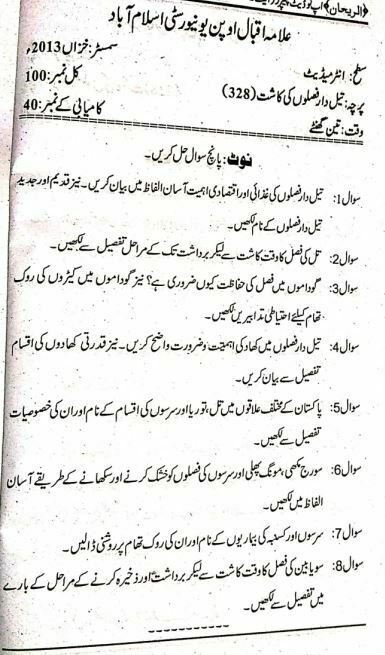 ﴿الریحان﴾ اپ ٹو ڈیٹ پیپرز
علامہ اقبال اوپن یونیورسٹی اسلام آباد
سطح: انٹرمیڈیٹ سمسٹر: خزاں 2013ء
پرچہ: تیل دار فصلوں کی کاشت (328) کل نمبر: 100
وقت: تین گھنٹے کامیابی کے نمبر: 40
نوٹ: پانچ سوال حل کریں۔
سوال1: تیل دار فصلوں کی غذائی اور اقتصادی اہمیت آسان الفاظ میں بیان کریں۔ نیز قدیم اور جدید
تیل دار فصلوں کے نام لکھیں۔
سوال2: تل کی فصل کا وقت کاشت سے لیکر برداشت تک کے مراحل تفصیل سے لکھیں۔
سوال3: گوداموں میں فصل کی حفاظت کیوں ضروری ہے؟ نیز گوداموں میں کیڑوں کی روک
تھام کیلئے احتیاطی تدابیر لکھیں۔
سوال4: تیل دار فصلوں میں کھاد کی اہمیت و ضرورت واضح کریں۔ نیز قدرتی کھادوں کی اقسام
تفصیل سے بیان کریں۔
سوال5: پاکستان کے مختلف علاقوں میں تل، توریا اور سرسوں کی اقسام کے نام اور ان کی خصوصیات
تفصیل سے لکھیں۔
سوال6: سورج مکھی، مونگ پھلی اور سرسوں کی فصلوں کو خشک کرنے اور سکھانے کے طریقے آسان
الفاظ میں لکھیں۔
سوال7: سرسوں اور کسنبہ کی بیماریوں کے نام اور ان کی روک تھام پر روشنی ڈالیں۔
سوال8: سویا بین کی فصل کا وقت کاشت سے لیکر برداشت اور ذخیرہ کرنے کے مراحل کے بارے
میں تفصیل سے لکھیں۔